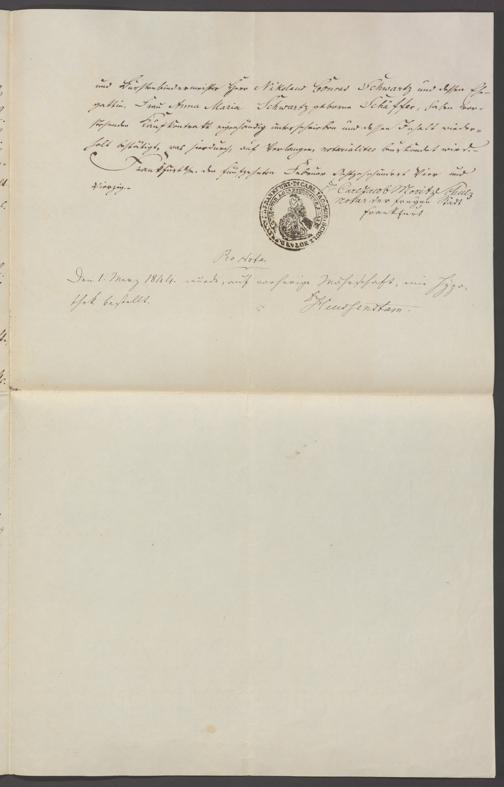 und Bürstenbindermeister Herr Nikolaus Schwartz und dessen Ehe-
gattin, Frau Anna Maria Schwartz geborne Schäffer, haben vor-
stehenden Kaufkontrakt eigenhändig unterschrieben und dessen Inhalt wieder-
holt bestätigt, was hierdurch, auf Verlangen, notarialiter beurkundet wird.-
Frankfurt den fünfzehnten Februar Achtzehnhundert Vier und
vierzig.-
Carl Jacob Moritz Schulz
Notar der freyen Stadt
Frankfurt
Pro Nota.
Den 1. März 1844. wurde, auf vorherige Währschaft, eine Hypo-
thek bestellt.